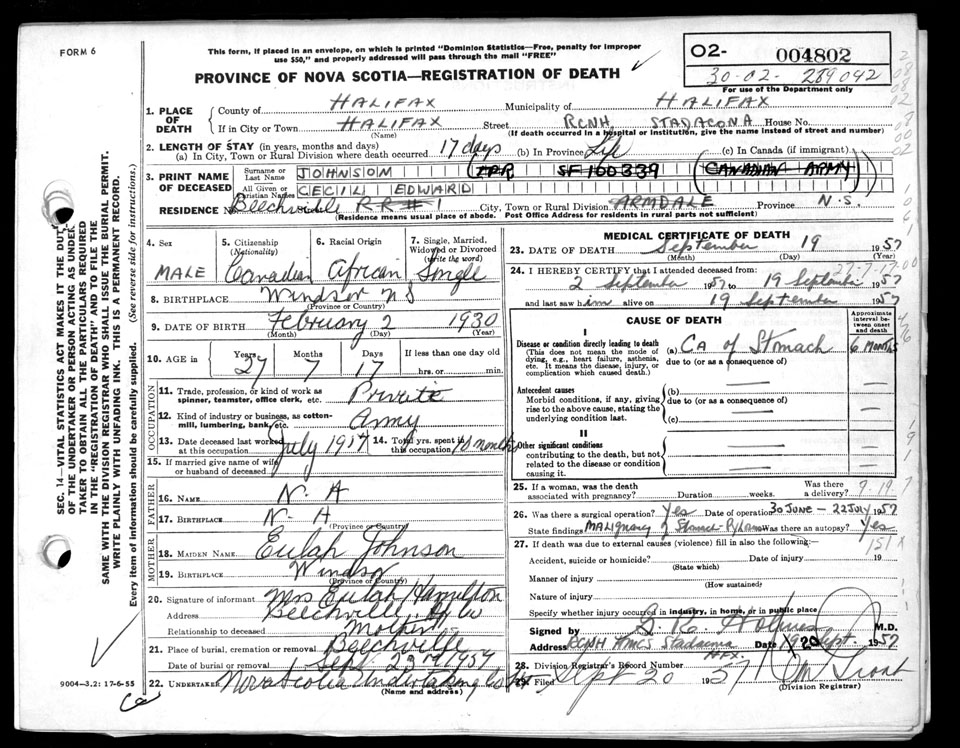 FORM 6
This form, if placed in an envelope, on which is printed "Dominion Statistics—Free, penalty for improper
use $50," and properly addressed will pass through the mail "FREE"
PROVINCE OF NOVA SCOTIA—REGISTRATION OF DEATH
02- 004802
30-02- 289042
For use of the Department only
1. PLACE OF DEATH
County of HALIFAX Municipality of HALIFAX
If in City or Town HALIFAX Street RCNH, STADACONA House No.
(Name) (If death occurred in a hospital or institution, give the name instead of street and number)
2. LENGTH OF STAY (in years, months and days)
(a) In City, Town or Rural Division where death occurred 17 days (b) In Province Life (c) In Canada (if immigrant)
3. PRINT NAME OF DECEASED
Surname or Last Name JOHNSON SF 100339 (CANADIAN ARMY)
All Given or Christian Names CECIL EDWARD
RESIDENCE No. Beechville RR#1 City, Town or Rural Division ARMDALE Province N.S.
(Residence means usual place of abode. Post Office Address for residents in rural parts not sufficient)
4. Sex MALE
5. Citizenship (Nationality) Canadian
6. Racial Origin African
7. Single, Married, Widowed or Divorced (write the word) Single
8. BIRTHPLACE Windsor NS
(Province or Country)
9. DATE OF BIRTH February 2 1930
(Month) (Day) (Year)
10. AGE in Years 27 Months 7 Days 17 If less than one day old
hrs. or min.
OCCUPATION
11. Trade, profession, or kind of work as spinner, teamster, office clerk, etc. Private
12. Kind of industry or business, as cotton-mill, lumbering, bank, etc. Army
13. Date deceased last worked at this occupation July 1957 14. Total yrs. spent in this occupation 10 months
15. If married give name of wife or husband of deceased
FATHER
16. NAME N. A
17. BIRTHPLACE N. A
(Province or Country)
MOTHER
18. MAIDEN NAME Eulah Johnson
19. BIRTHPLACE Windsor
(Province or Country)
20. Signature of informant Mrs Eulah Hamilton
Address Beechville
Relationship to deceased Mother
21. Place of burial, cremation or removal Beechville
Date of burial or removal Sept 23rd 1957
22. UNDERTAKER Nova Scotia Undertaking Co
(Name and address)
MEDICAL CERTIFICATE OF DEATH
23. DATE OF DEATH September 19 1957
(Month) (Day) (Year)
24. I HEREBY CERTIFY that I attended deceased from:
2 September 1957 to 19 September 1957
and last saw him alive on 19 September 1957
CAUSE OF DEATH
Approximate interval between onset and death
I
Disease or condition directly leading to death (a) CA of Stomach 6 Months
(This does not mean the mode of dying, e.g., heart failure, asthenia, etc. It means the disease, injury, or complication which caused death.)
due to (or as a consequence of)
Antecedent causes (b) —
Morbid conditions, if any, giving rise to the above cause, stating the underlying condition last.
due to (or as a consequence of)
(c) —
II
Other significant conditions
contributing to the death, but not related to the disease or condition causing it.
25. If a woman, was the death associated with pregnancy? Duration weeks. Was there a delivery?
26. Was there surgical operation? Yes Date of operation 30 JUNE — 22 JULY 1957
State findings Malignancy of Stomach Was there an autopsy? Yes
27. If death was due to external causes (violence) fill in also the following:—
Accident, suicide or homicide? Date of injury 19
(State which)
Manner of injury
(How sustained)
Nature of injury
Specify whether injury occurred in industry, in home, or in public place
Signed by Holmes M.D.
Address RCNH HMCS Stadacona HFX. Date 20 Sept. 1957
28. Division Registrar's Record Number
29. Filed Sept 20 1957
(Division Registrar)
SEC. 14—VITAL STATISTICS ACT MAKES IT THE DUTY
OF THE UNDERTAKER OR PERSON ACTING AS UNDER-
TAKER TO OBTAIN ALL THE PARTICULARS REQUIRED
IN THE "REGISTRATION OF DEATH" AND TO FILE THE
SAME WITH THE DIVISION REGISTRAR WHO SHALL ISSUE THE BURIAL PERMIT.
WRITE PLAINLY WITH UNFADING INK. THIS IS A PERMANENT RECORD.
Every item of information should be carefully supplied. (See reverse side for instructions.)
9004—3.2: 17-6-55